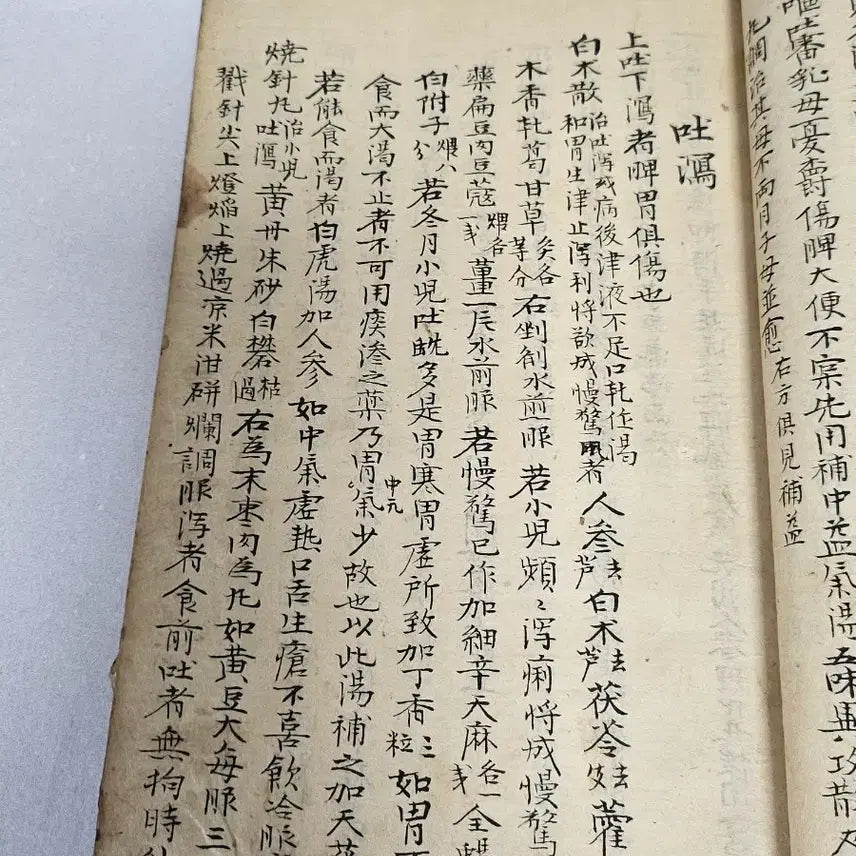 嘔吐審乳母憂欝傷脾大便不実先用補中益氣湯五味異功散及
乳調治其母不兩月子母並愈右方俱見補益
吐瀉
上吐下瀉者脾胃俱傷也
白朮散治吐瀉或病後津液不足口乾作渴和胃生津止瀉利將欲成慢驚風者人參去芦白朮去芦茯苓去皮藿
木香乾葛甘草炙各等分右剉水煎服若小児頻〻瀉痢將成慢驚
藥扁豆肉豆蔻煨各一戔薑一片水煎服若慢驚已作加細辛天麻各一戔全蝎
白附子煨八分若冬月小児吐晄多是胃寒胃虛所致加丁香三粒如胃
食而大渴不止者不可用痰滲之藥乃胃中元氣少故也以此湯補之加天花
若能食而渴者白虎湯加人參如中氣虛熱口舌生瘡不喜飲冷服
燒針丸治小児吐瀉黃丹朱砂白礬枯過右為末棗肉為丸如黃豆大每服三
戳針尖上燈焰上燒過凉米泔研爛調服瀉者食前吐者無拘時